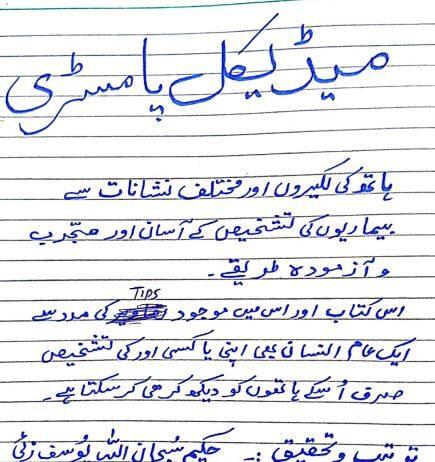 میڈیکل پامسٹری
ہاتھ کی لکیروں اور مختلف نشانات سے
بیماریوں کی تشخیص کے آسان اور مجرب
و آزمودہ طریقے۔
TIPS
اس کتاب اور اس میں موجود کی مدد سے
ایک عام انسان بھی اپنی یا کسی اور کی تشخیص
صرف اُسکے ہاتھوں کو دیکھ کر ھی کر سکتا ہے۔
ترتیب و تحقیق :۔ حکیم سُبحان اللہ یُوسف زئی